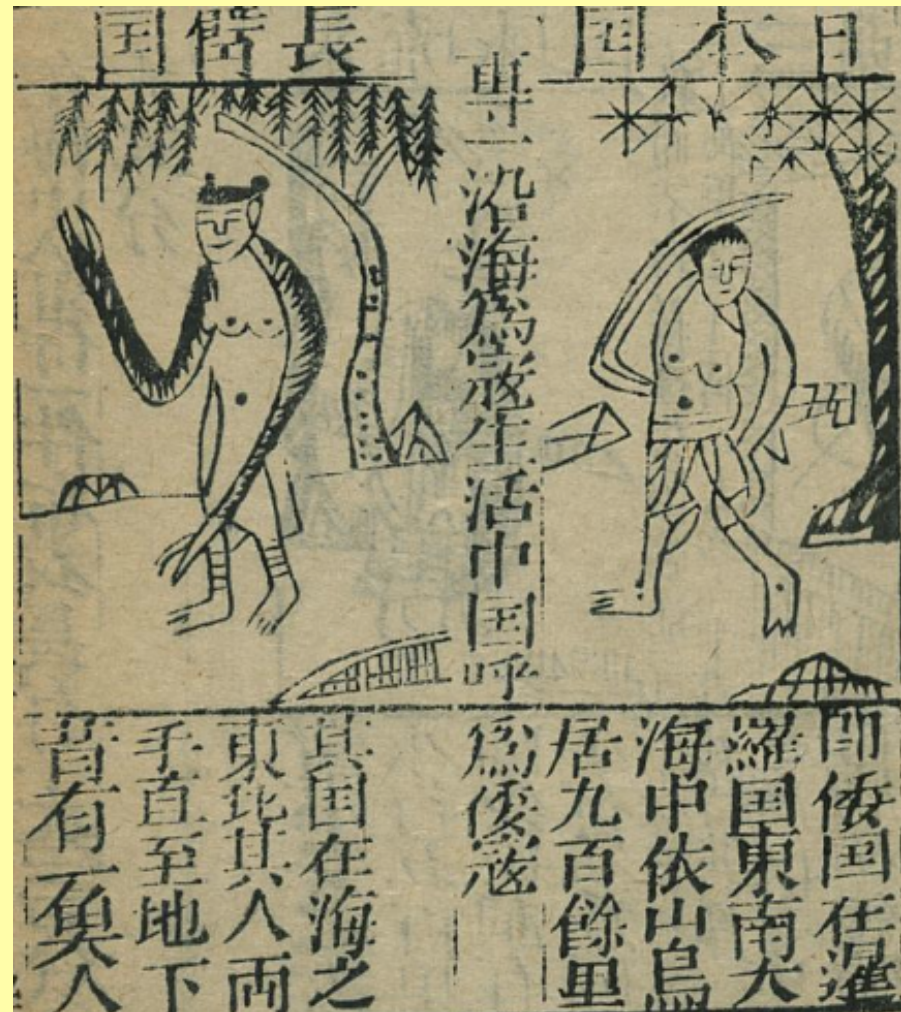 日本国
即倭国在暹
羅国東南大
海中依山島
居九百餘里
專一沿海爲寇生活中国呼
爲倭寇
長臂国
其国在海之
東北其人両
手直至地下
昔有一人